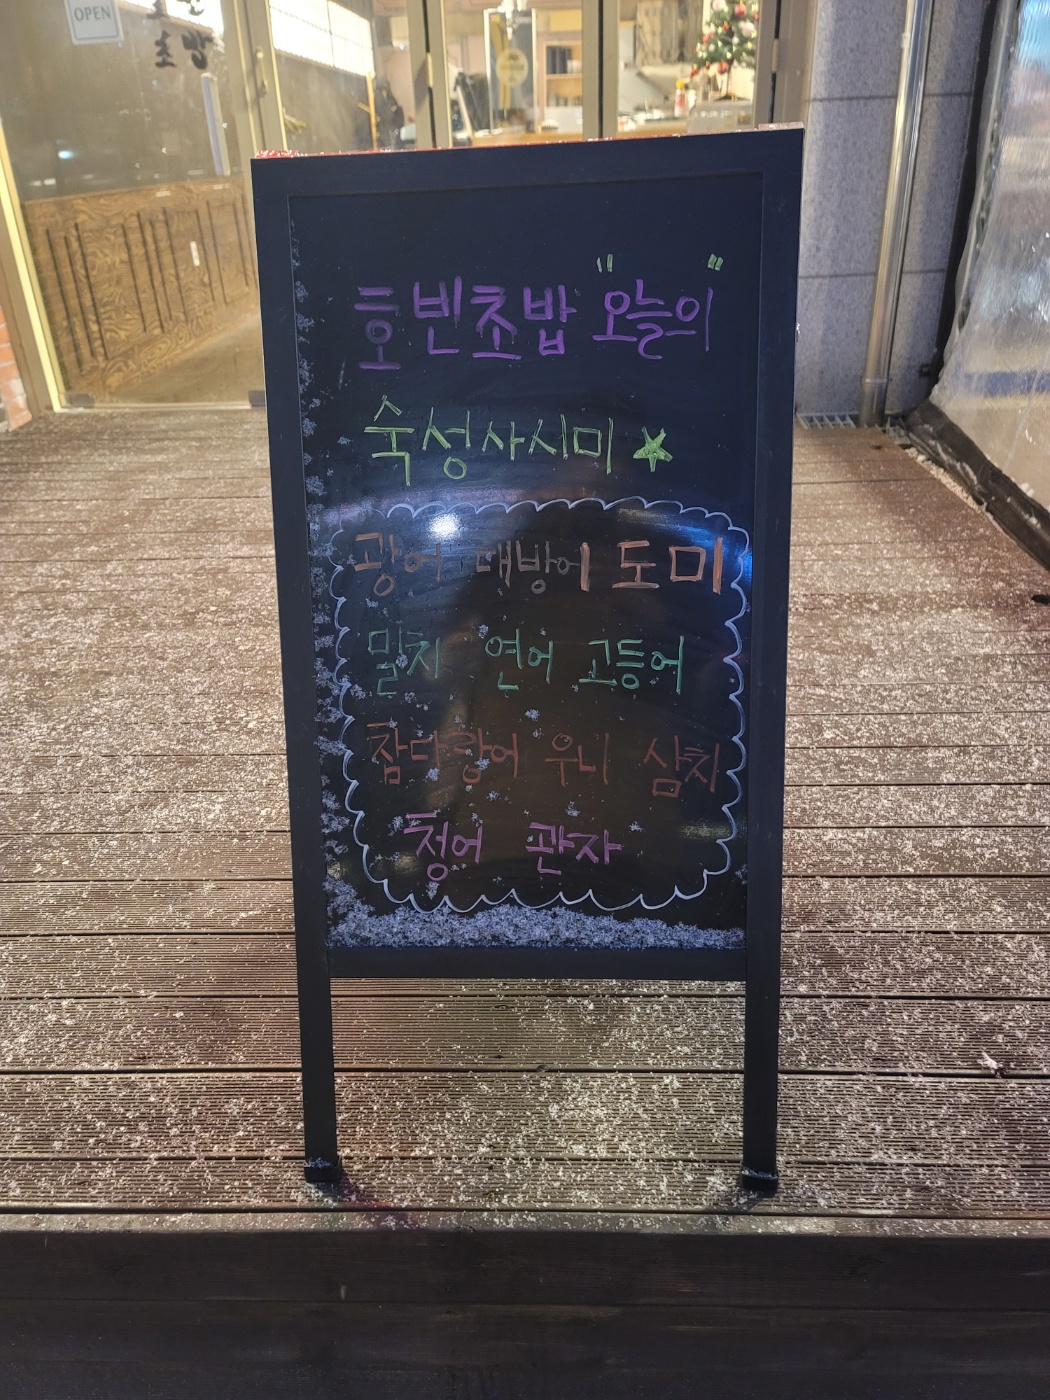 OPEN
초밥
호빈초밥 "오늘의"
숙성사시미
광어 대방어 도미
밀치 연어 고등어
참다랑어 우니 삼치
청어 관자